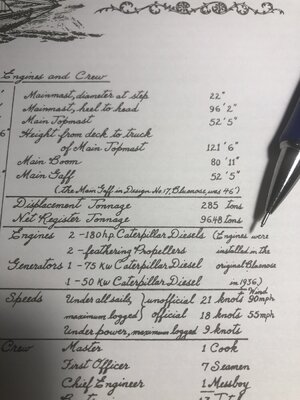 Engines and Crew
Mainmast, diameter at step 22"
Mainmast, heel to head 96'2"
Main Topmast 52'5"
Height from deck to truck
of Main Topmast 121'6"
Main Boom 80'11"
Main Gaff 52'5"
(The Main Gaff in Design No 17, Bluenose, was 46')
Displacement Tonnage 285 tons
Net Register Tonnage 96.48 tons
Engines 2-180 hp Caterpillar Diesels (Engines were
2-feathering Propellers installed in the
Generators 1-75 Kw Caterpillar Diesel original Bluenose
1-50 Kw Caterpillar Diesel in 1936)
Speeds Under all sails, unofficial 21 knots Wind 90mph
maximum logged official 18 knots 55mph
Under power, maximum logged 9 knots
Crew Master 1 Cook
First Officer 7 Seamen
Chief Engineer 1 Messboy